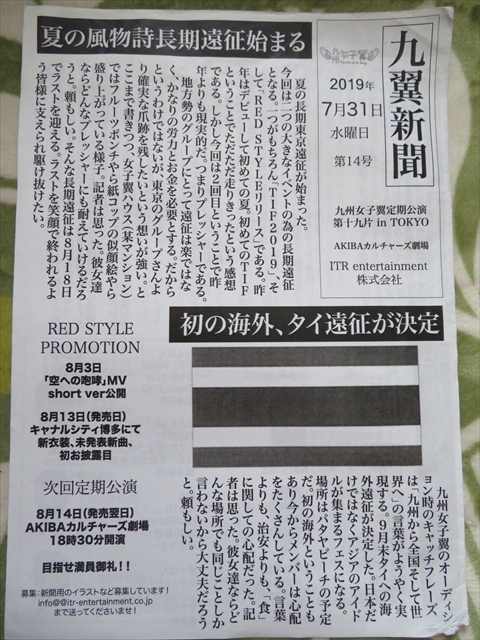 夏の風物詩長期遠征始まる
九翼新聞
2019年
7月31日
水曜日
第14号
九州女子翼定期公演
第十九片 in TOKYO
AKIBAカルチャーズ劇場
ITR entertainment
株式会社
夏の長期東京遠征が始まった。
今回は二つの大きなイベントの為の長期遠征
となる。一つがもちろん「TIF2019」、そ
して「RED STYLEリリース」である。昨
年はデビューして初めての夏。初めてのTIF
ということでただただ走りきったという感想
だ。しかし今回は2回目ということで昨
年よりも現実的だ。つまりプレッシャーである。
地方勢のグループにとって遠征は楽ではな
く、かなりの労力とお金を必要とする。だから
というわけではないが、東京のグループさんよ
り確実な爪跡を残したいという想いが強い。と
ここまで書きつつ、女子翼ハウス(某マンション)
ではフルーツポンチやら紙コップの似顔絵やら
盛り上がっている様子。記者は思った。彼女達
ならどんなプレッシャーにも耐えていけるだろ
うと。頼もしい。そんな長期遠征は8月18日
でラストを迎える。ラストを笑顔で終われるよ
う皆様に支えられ駆け抜けたい。
初の海外、タイ遠征が決定
九州女子翼のオーディシ
ョン時のキャッチフレーズ
は「九州から全国そして世
界へ」の言葉がようやく実
現する。9月末タイへの海
外遠征が決定した。日本だ
けではなくアジアのアイド
ルが集まるフェスになる。
場所はパタヤビーチの予定
だ。初の海外ということも
あり今からメンバーは心配
をたくさんしている。言葉
よりも、治安よりも、「食」
に関しての心配だった。記
者は思った。彼女達ならど
んな場所でも同じことしか
言わないから大丈夫だろう
と。頼もしい。
RED STYLE
PROMOTION
8月3日
「空への咆哮」MV
short ver公開
8月13日(発売日)
キャナルシティ博多にて
新衣装、未発表新曲、
初お披露目
次回定期公演
8月14日(発売翌日)
AKIBAカルチャーズ劇場
18時30分開演
目指せ満員御礼!!
募集:新聞用のイラストなど募集しています!
info@@itr-entertainment.co.jp
まで送ってくださいませ!